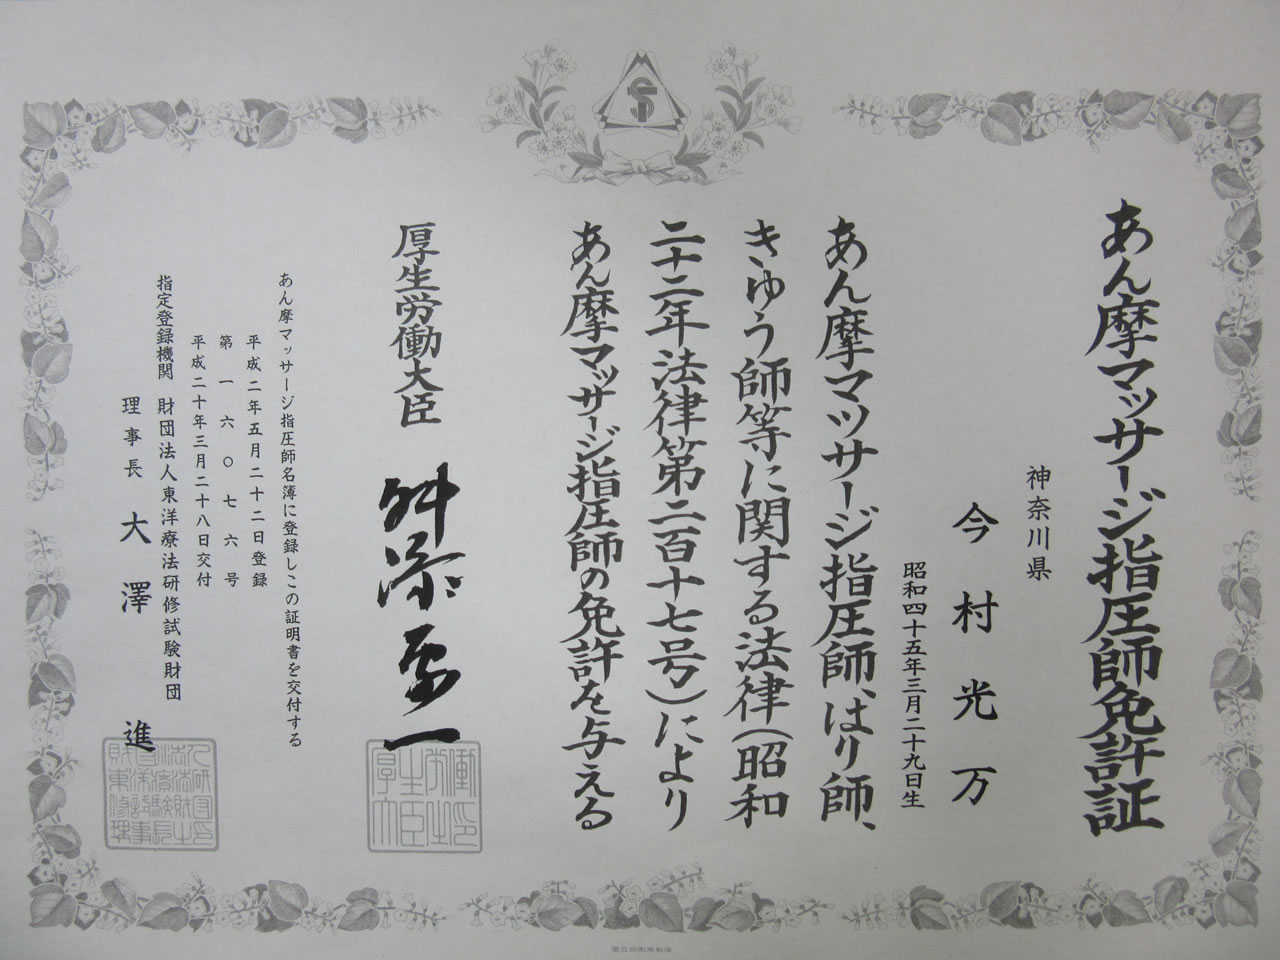 あん摩マッサージ指圧師免許証
神奈川県
今村光万
昭和四十五年三月二十九日生
あん摩マツサージ指圧師、はり師、
きゆう師等に関する法律(昭和
二十二年法律第二百十七号)により
あん摩マッサージ指圧師の免許を与える
厚生労働大臣 舛添要一
あん摩マッサージ指圧師名簿に登録しこの証明書を交付する
平成二年五月二十二日登録
第一六〇七六号
平成二十年三月二十八日交付
指定登録機関 財団法人東洋療法研修試験財団
理事長 大澤進